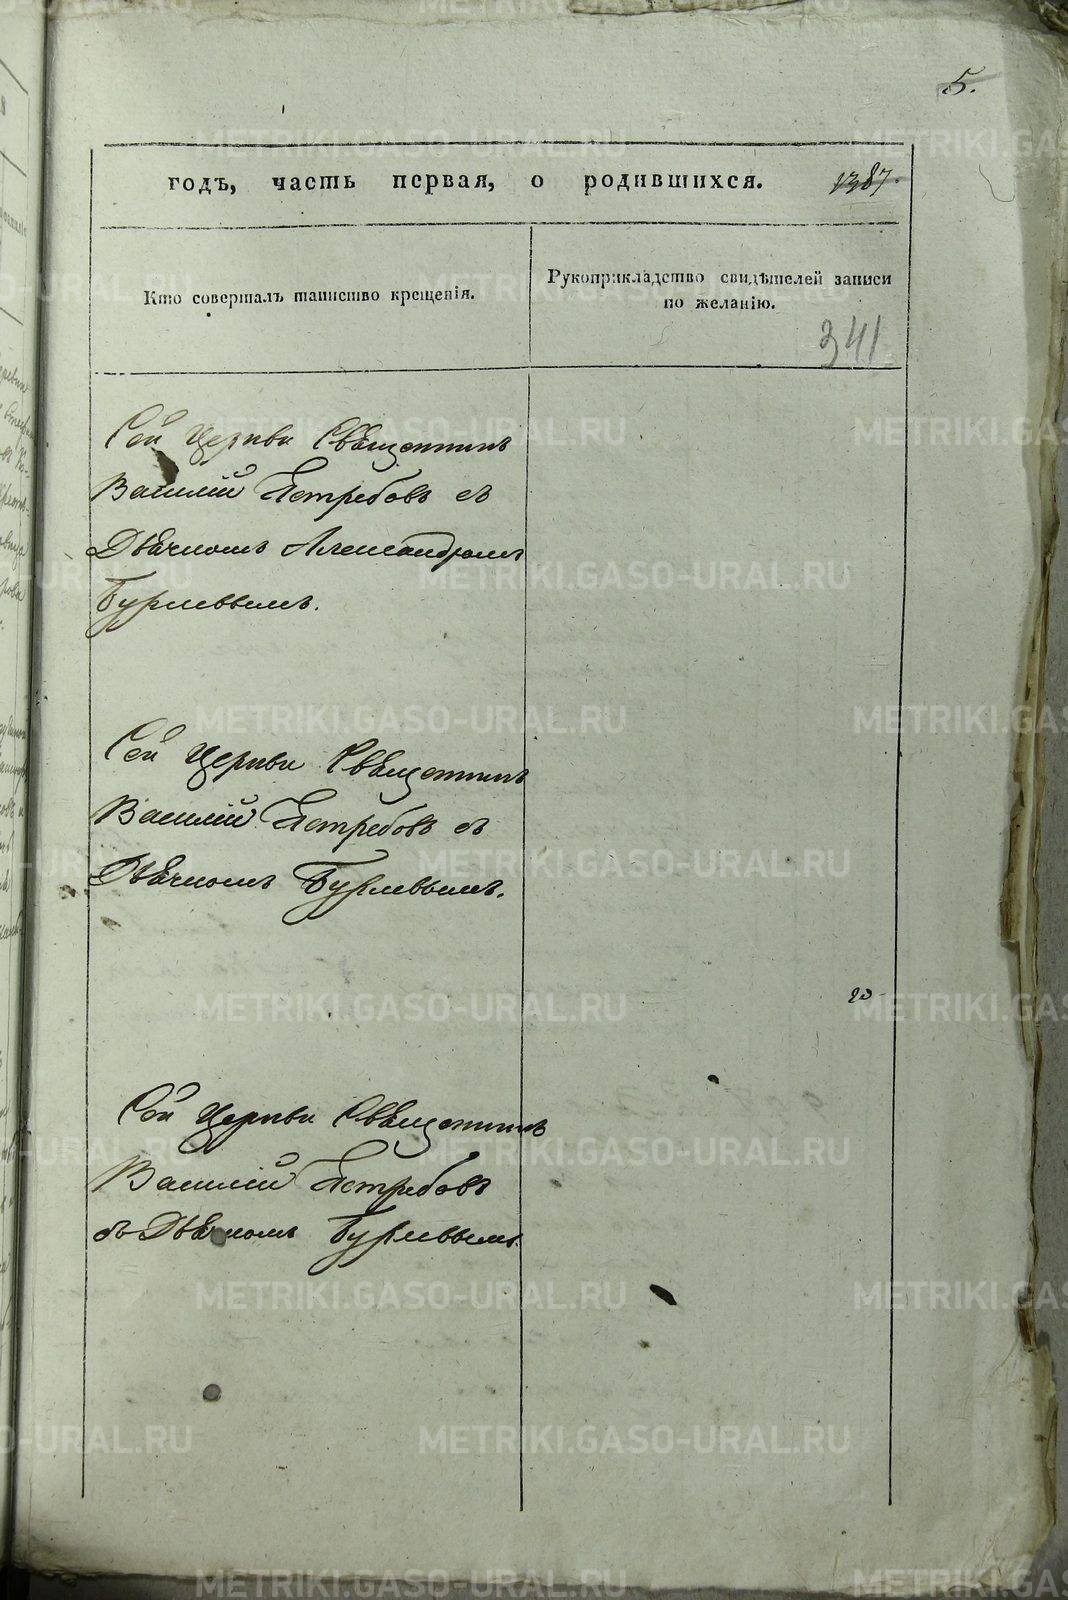 5.
годъ, часть первая, о родившихся. 1387.
Кто совершалъ таинство крещенія.
Рукоприкладство свидѣтелей записи
по желанію.
341
Сей Церкви Священникъ
Василій Ястребовъ съ
Дьячкомъ Александромъ
Бурлевымъ.
Сей Церкви Священникъ
Василій Ястребовъ съ
Дьячкомъ Бурлевымъ.
Сей Церкви Священникъ
Василій Ястребовъ
съ Дьячкомъ Бурлевымъ.
METRIKI.GASO-URAL.RU